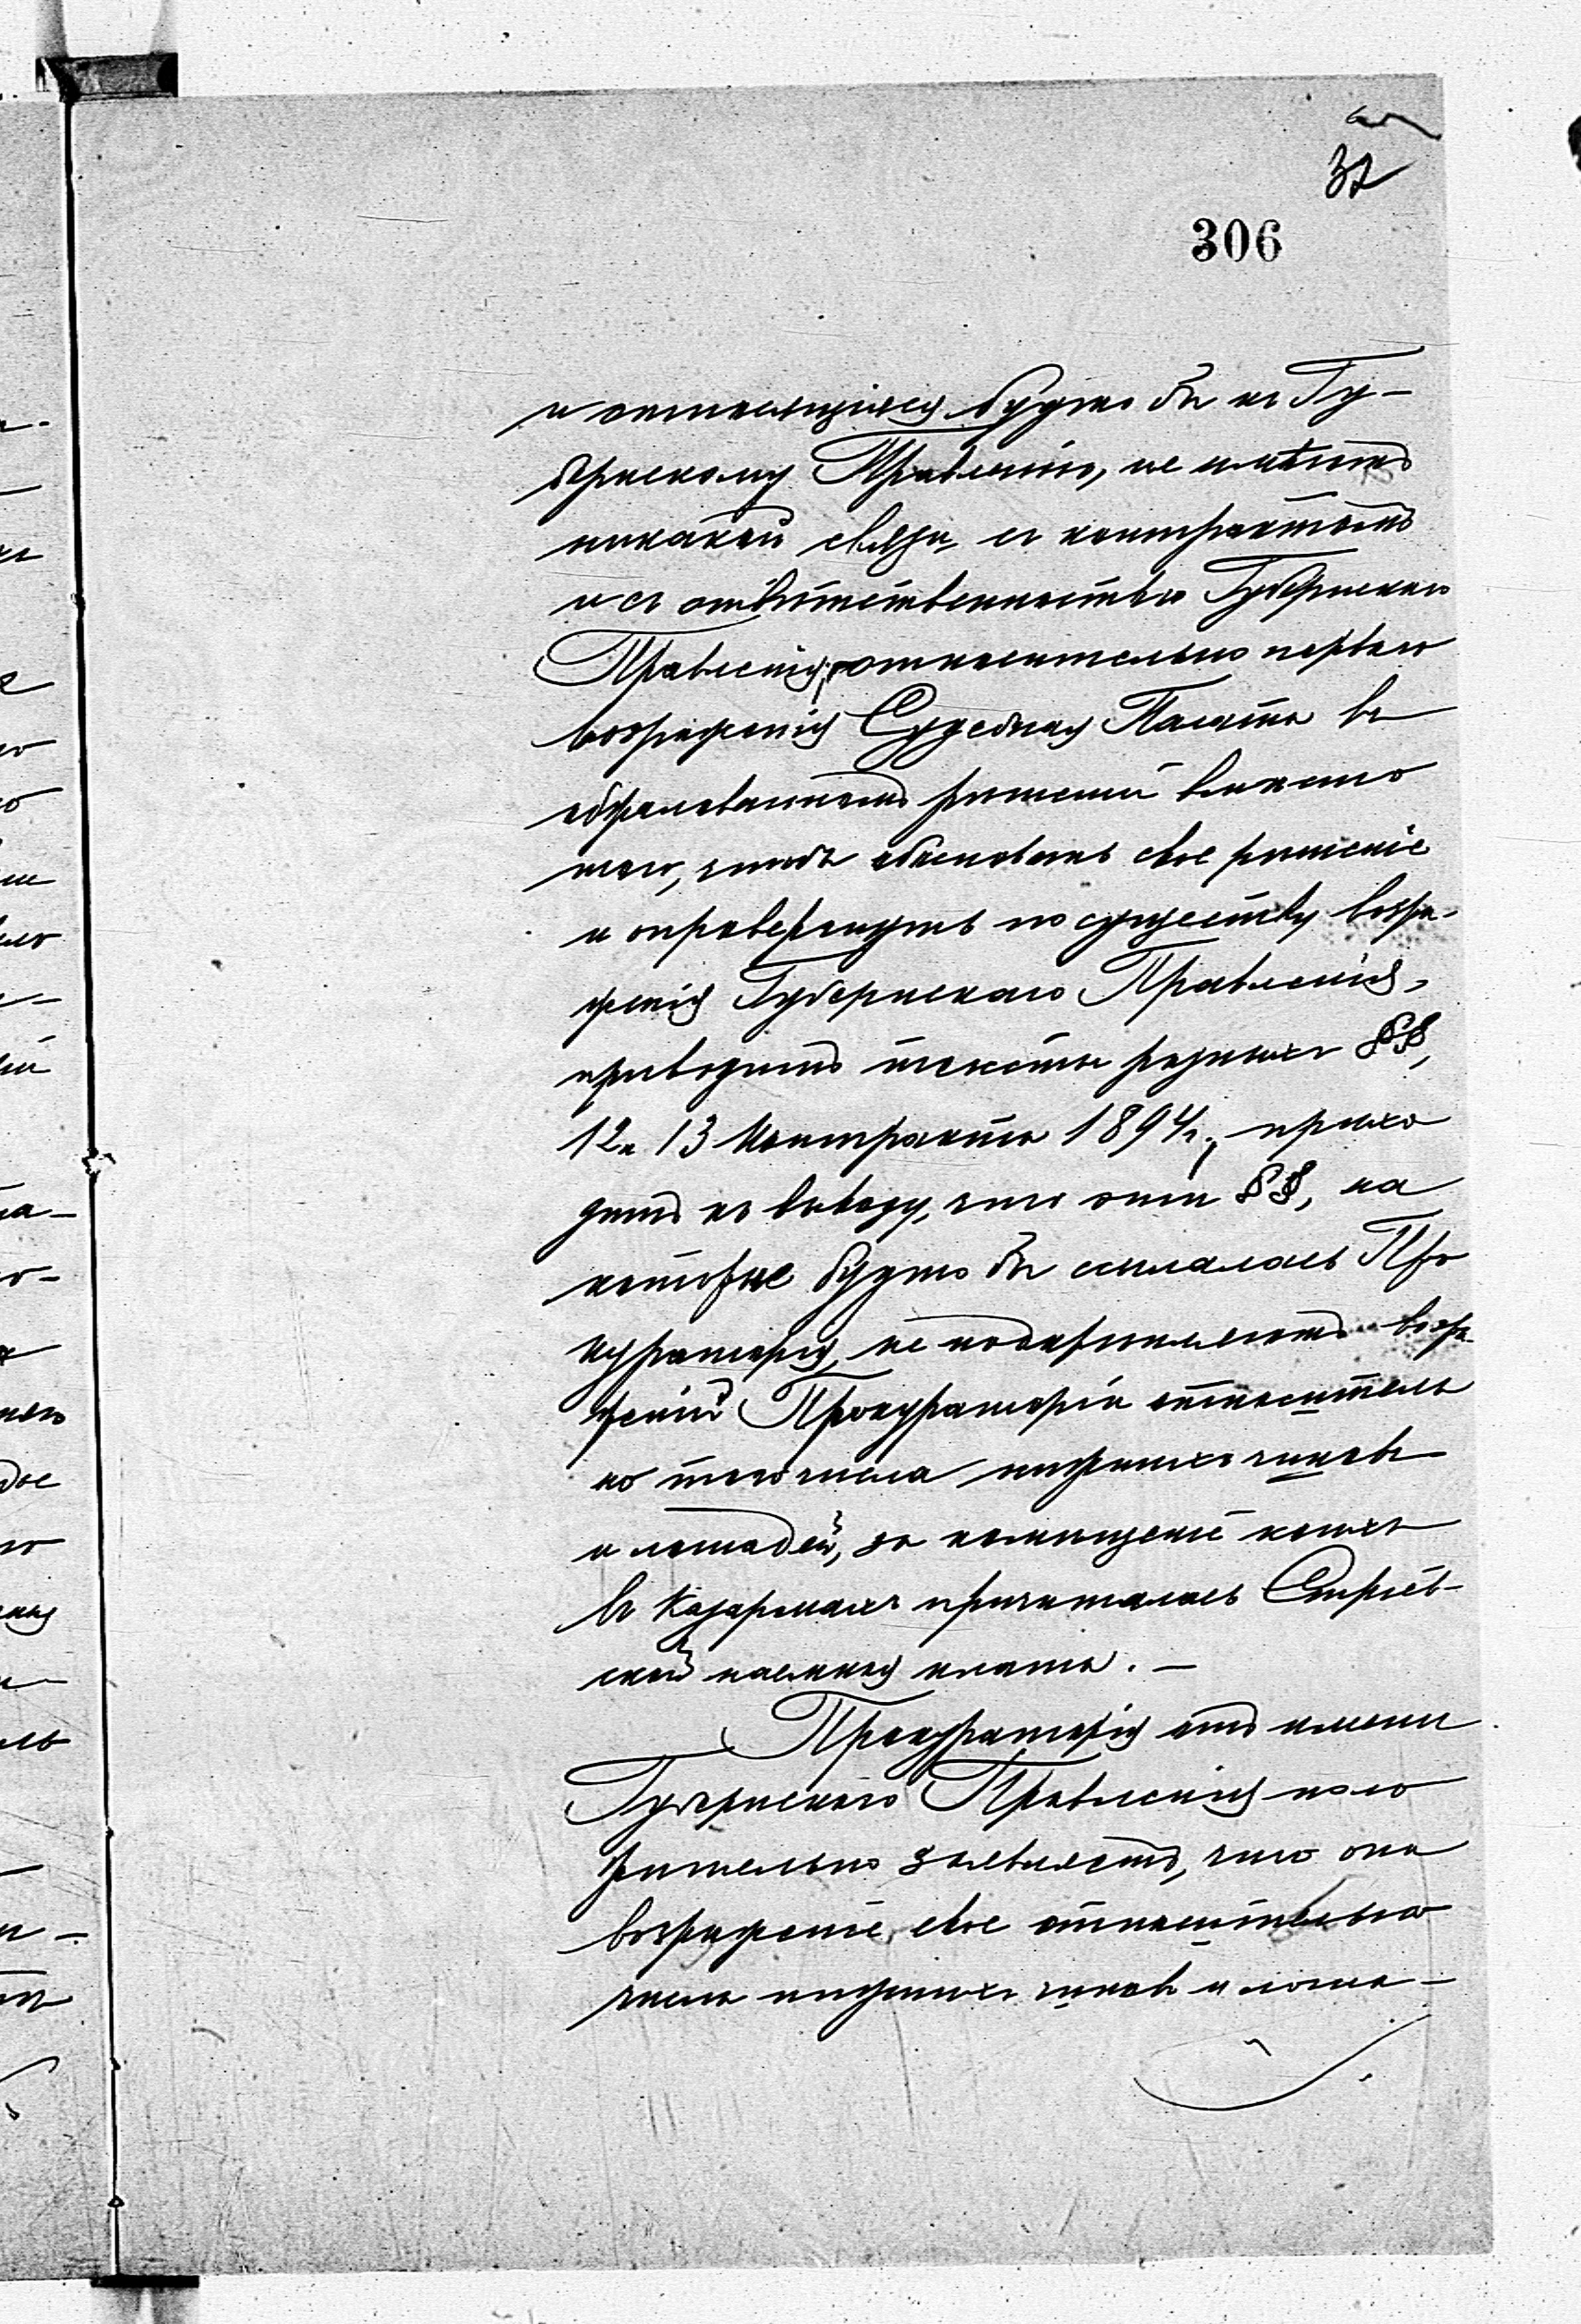 37
306
и относящіяся будто бы къ Гу-
бернскому Правленію, не имѣютъ
никакой связи съ контрактомъ
и съ отвѣтственностью Губернскаго
Правленія, относительно перваго
возраженія Судебная Палата въ
обжалованномъ рѣшеніи вмѣсто
того, чтобы обосновать свое рѣшеніе
и опровергнуть по существу возра-
женія Губернскаго Правленія,
приводитъ тексты разныхъ §§,
12 и 13 контракта 1894 г., прихо
дитъ къ выводу, что эти §§, на
которые будто бы ссылалась Про
кураторія, не подкрѣпляютъ возра-
женій Прокураторіи относитель
но того числа нижнихъ чиновъ
и лошадей, за помѣщеніе коихъ
въ казармахъ причиталась
ской наемная плата. —
Прокураторія отъ имени
Губернскаго Правленія поло
жительно заявляетъ, что она
возраженіе свое относительно
числа нижнихъ чиновъ и лоша-